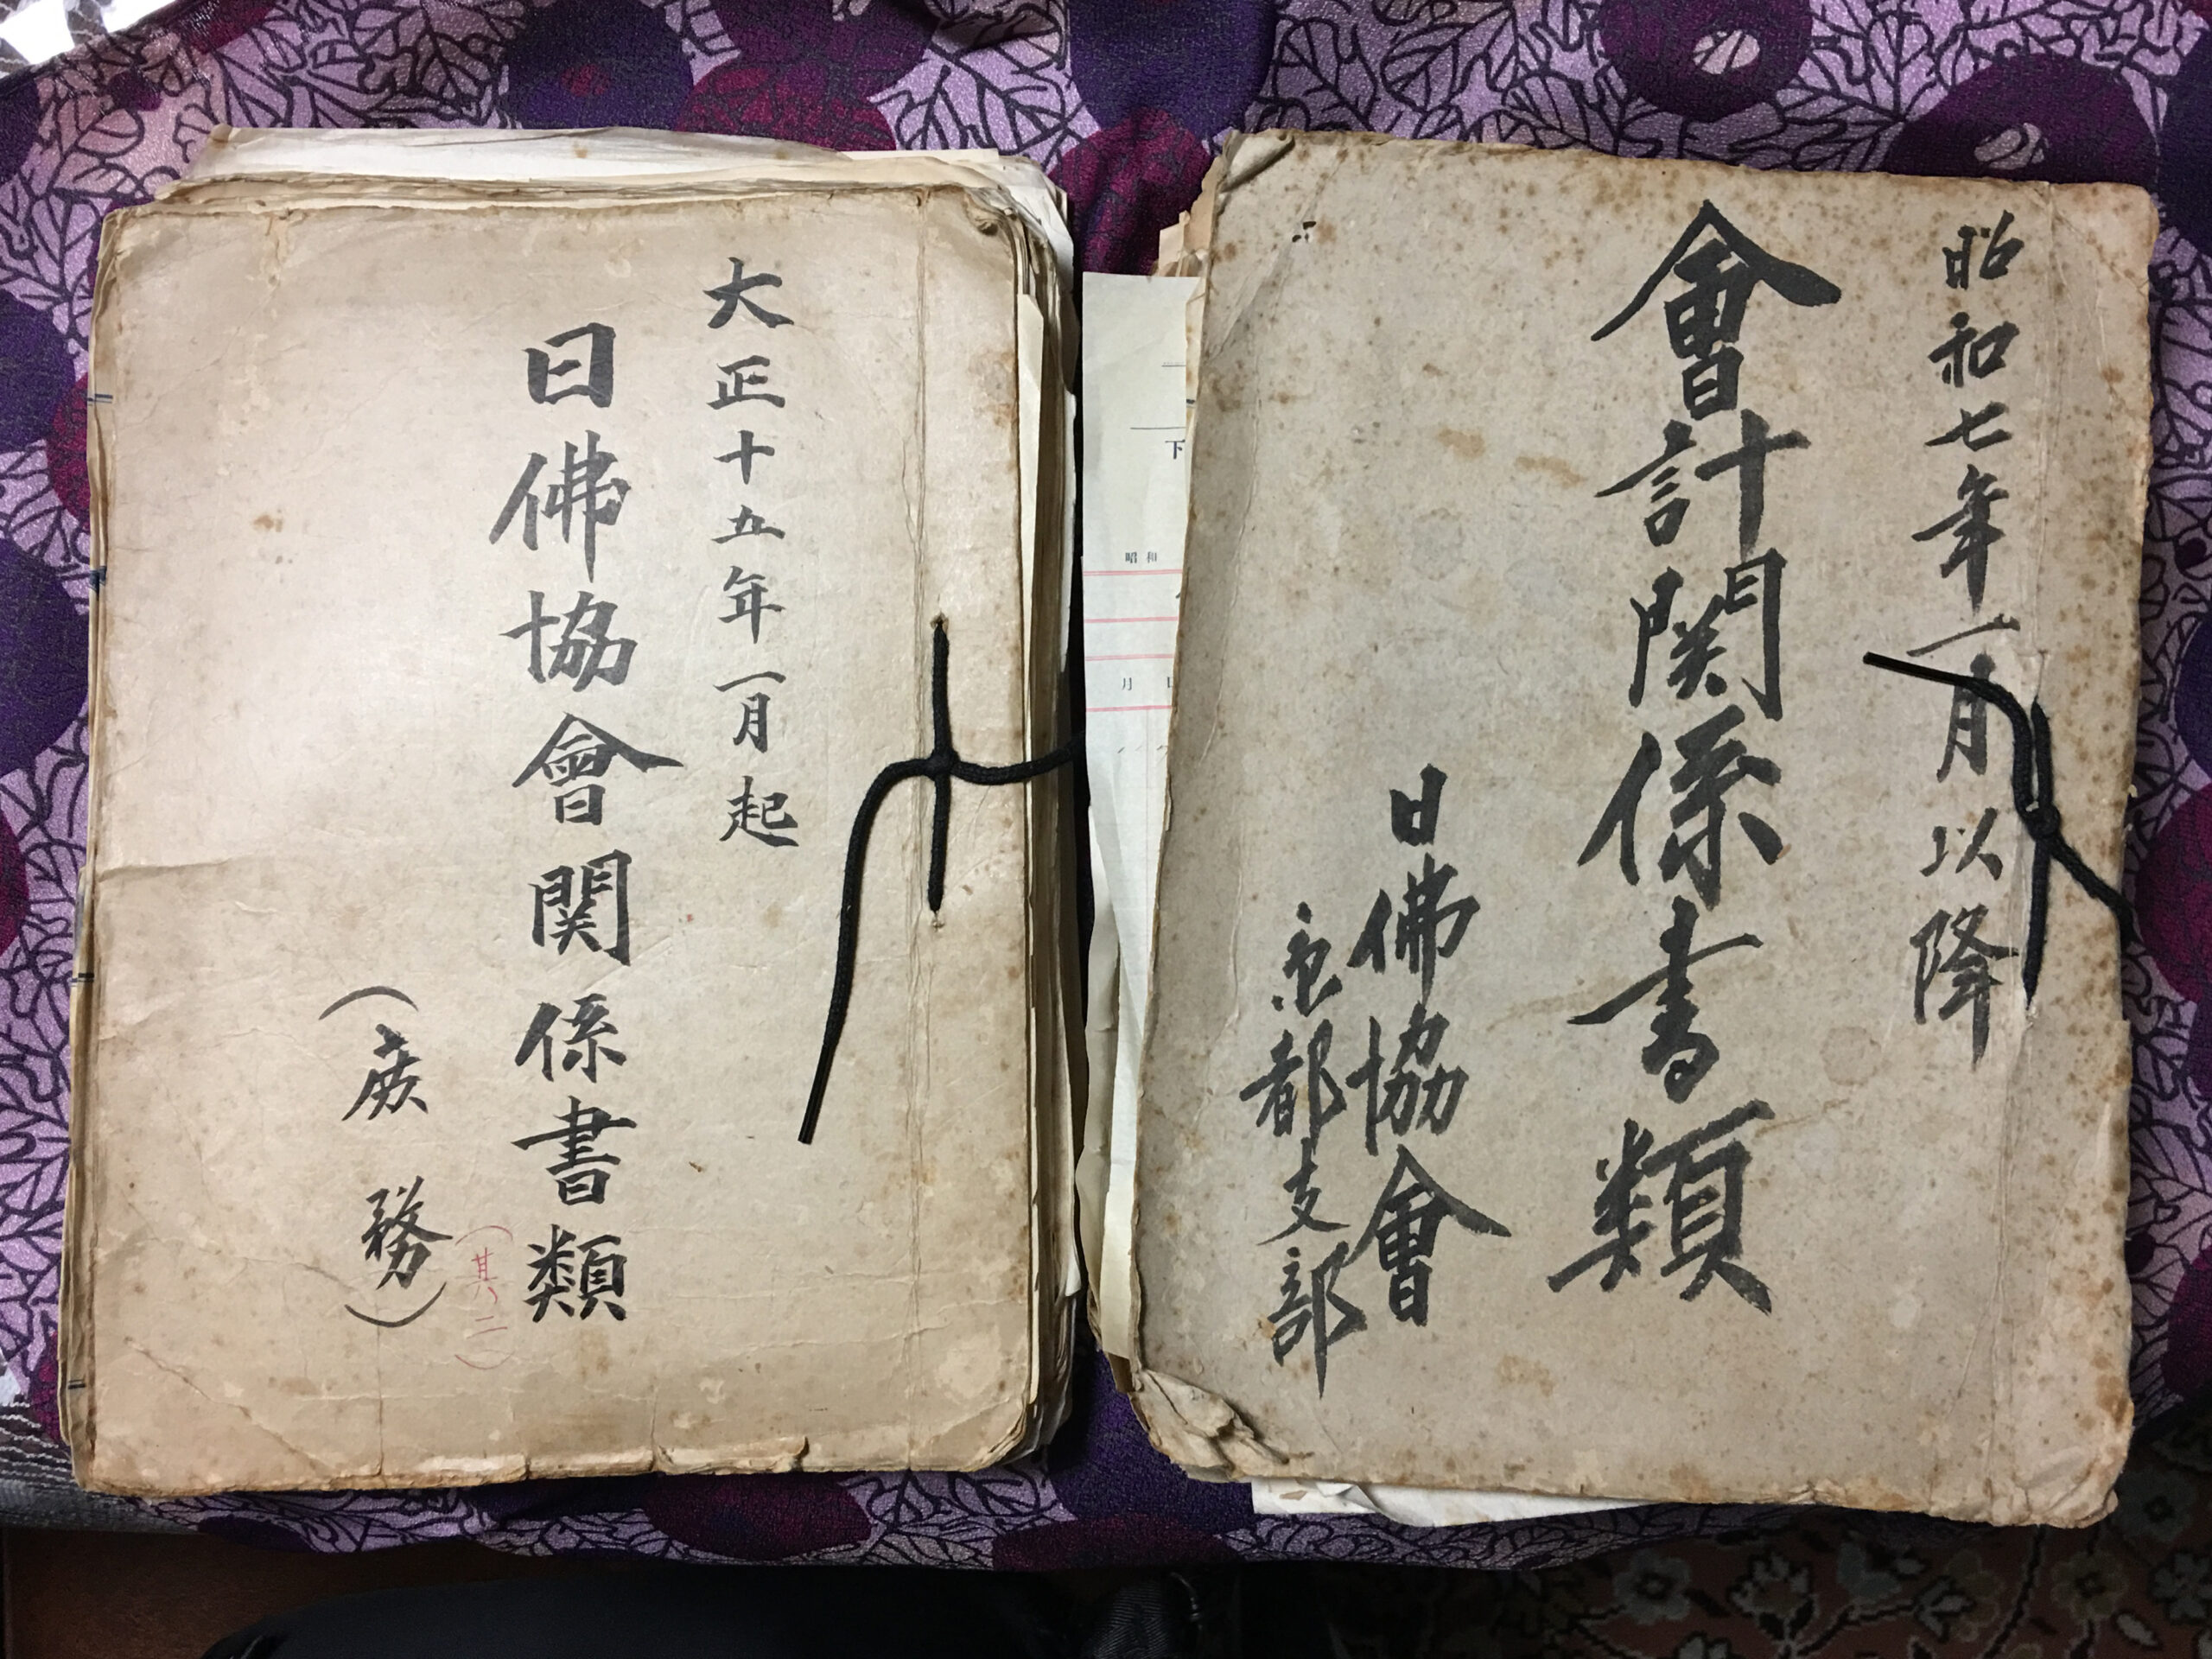 大正十五年一月起
日佛協會関係書類
(其ノ二)
(庶務)
昭和七年一月以降
會計関係書類
日佛協會
京都支部
下
昭和
月